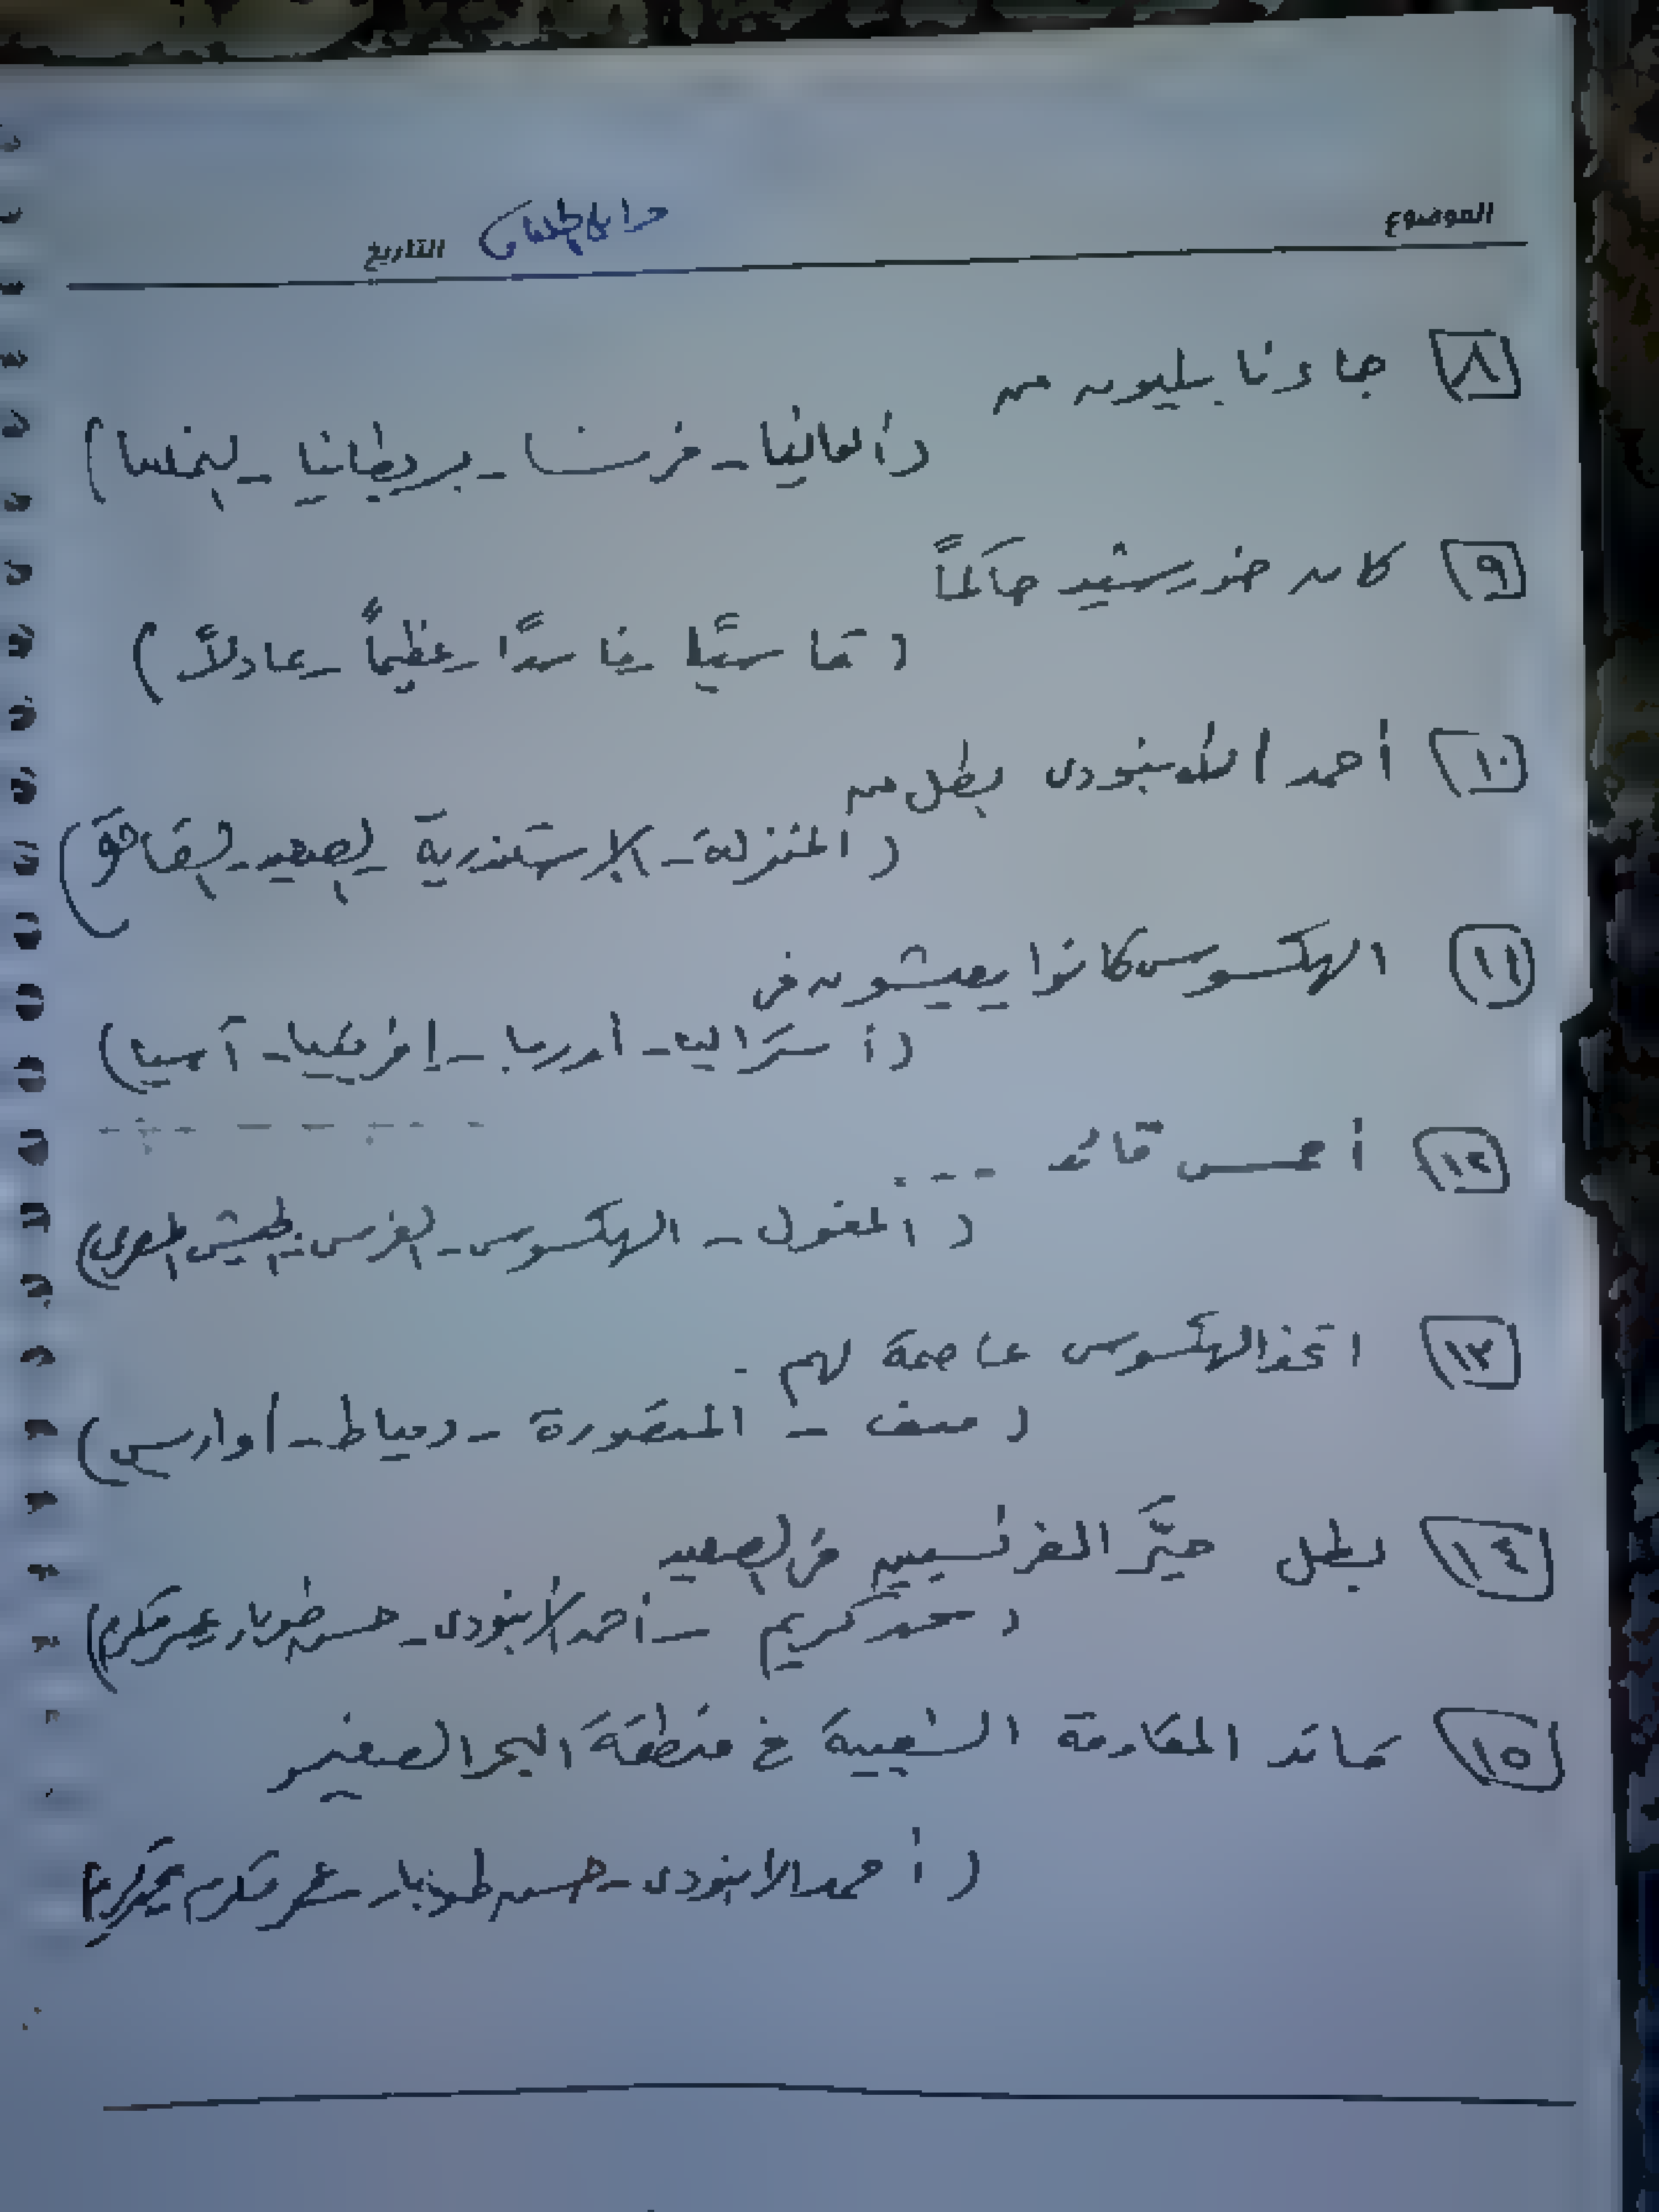 الموضوع
التاريخ
٨ جاءنا بيليون من
(ألمانيا - فرنسا - بريطانيا - النمسا)
٩ كان خورشيد حاكماً
(قاسيًا - فاسدًا - عظيماً - عادلاً)
١٠ أحمد الأبنودى بطل من
(المنزلة - الإسكندرية - الصعيد -
١١ الهكسوس كانوا يعيشون فى
(أستراليا - أوربا - إفريقيا - آسيا)
١٢ أحمس قائد ....
(المغول - الهكسوس - الفرس - الجيش المصرى)
١٣ اتخذ الهكسوس عاصمة لهم .
(منف - المنصورة - دمياط - أواريس)
١٤ بطل حيَّر الفرنسيين فى الصعيد
(محمد كريم - أحمد الأبنودى - حسن طوبار - عمر مكرم)
١٥ قائد المقاومة الشعبية فى منطقة البحر الصغير
(أحمد الأبنودى - حسن طوبار - عمر مكرم - محمد كريم)